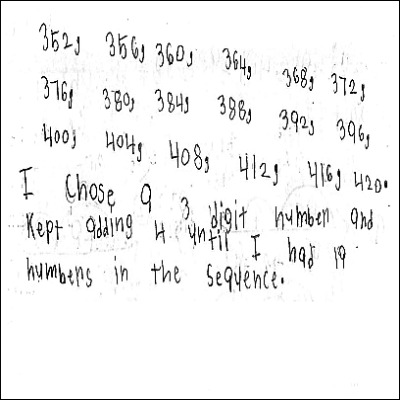 352, 356, 360, 364, 368, 372,
376, 380, 384, 388, 392, 396,
400, 404, 408, 412, 416, 420.
I chose a 3 digit number and
kept adding 4 until I had 19
numbers in the sequence.